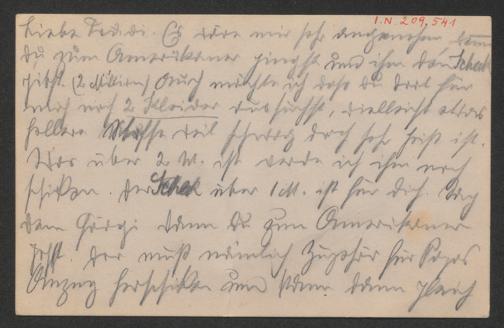 I.N. 209.541
Liebe Trudi. Es wäre mir sehr angenehm, wenn
Du zum Amerikaner gingst und ihm den Scheck
gibst (2 Million) Auch möchte ich dass Du dort für
mich noch 2 Kleider aussuchst, vielleicht etwas
hellere Stoffe weil schwarz doch sehr heiß ist.
Was über 2 M. ist werde ich ihm noch
schicken. Der Scheck über 1 M. ist für Dich. Sag
dem wann Du zum Amerikaner
gehst. Der muß nämlich Zugehör für Papas
Anzug herschicken und kann dann gleich